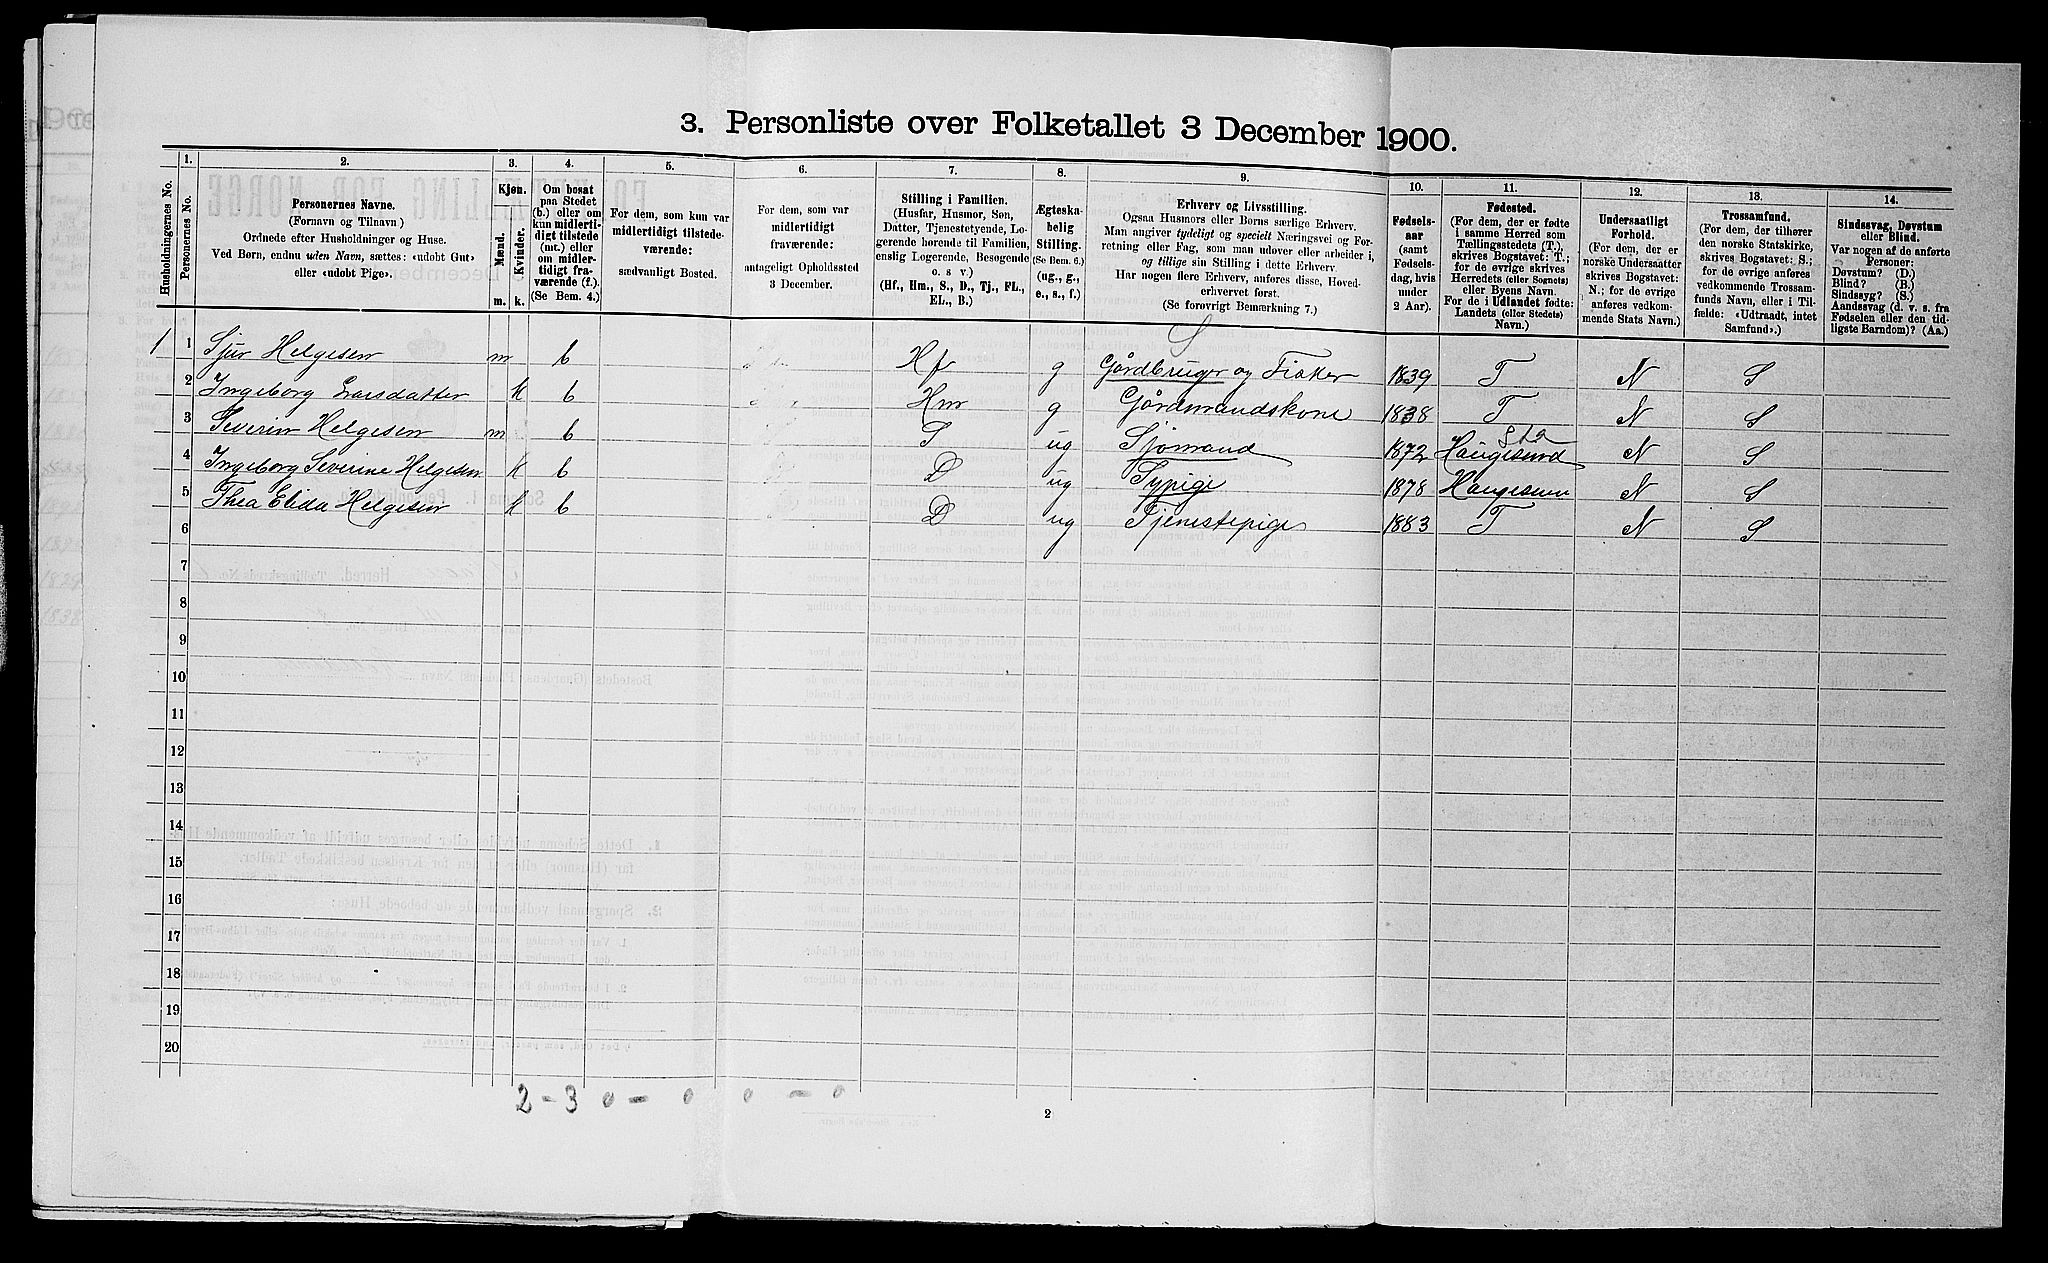 3. Personliste over Folketallet 3 December 1900.
Husholdningernes No.
1.
Personernes No.
2.
Personernes Navne.
(Fornavn og Tilnavn)
Ordnede efter Husholdninger og Huse.
Ved Børn, endnu uden Navn, sættes: «udøbt Gut»
eller «udøbt Pige».
3.
Kjøn.
Mænd.
Kvinder.
m. k.
4.
Om bosat
paa Stedet
(b.) eller om
kun midlerti-
digt tilstede
(mt.) eller
om midler-
tidigt fra-
værende (f.).
(Se Bem. 4.)
5.
For dem, som kun var
midlertidigt tilstede-
værende:
sædvanligt Bosted.
6.
For dem, som var
midlertidigt
fraværende:
antageligt Opholdssted
3 December.
7.
Stilling i Familien.
(Husfar, Husmor, Søn,
Datter, Tjenestetyende, Lo-
gerende hørende til Familien,
enslig Logerende, Besøgende
o. s v.)
(Hf., Hm., S., D., Tj., FL.,
EL., B.)
8.
Ægteska-
belig
Stilling.
(Se Bem. 6.)
(ug., g.,
e., s., f.)
9.
Erhverv og Livsstilling.
Ogsaa Husmors eller Børns særlige Erhverv.
Man angiver tydeligt og specielt Næringsvei og For-
retning eller Fag, som man udøver eller arbeider i,
og tillige sin Stilling i dette Erhverv.
Har nogen flere Erhverv, anføres disse, Hoved-
erhvervet først.
(Se forøvrigt Bemærkning 7.)
10.
Fødsels-
aar
(samt
Fødsels-
dag, hvis
under
2 Aar).
11.
Fødested.
(For dem, der er fødte
i samme Herred som
Tællingsstedets (T.),
skrives Bogstavet: T.;
for de øvrige skrives
Herredets (eller Sognets)
eller Byens Navn.
For de i Udlandet fødte:
Landets (eller Stedets)
Navn.)
12.
Undersaatligt
Forhold.
(For dem, der er
norske Undersaatter
skrives Bogstavet:
N.; for de øvrige
anføres vedkom-
mende Stats Navn.)
13.
Trossamfund.
(For dem, der tilhører
den norske Statskirke,
skrives Bogstavet: S.;
for de øvrige anføres
vedkommende Trossam-
funds Navn, eller i Til-
fælde: «Udtraadt, intet
Samfund».)
14.
Sindssvag, Døvstum
eller Blind.
Var nogen af de anførte
Personer:
Døvstum? (D.)
Blind? (B.)
Sindssyg? (S.)
Aandssvag (d. v. s. fra
Fødselen eller den tid-
ligste Barndom)? (Aa.)
S
1 1 Sjur Helgesen m b Hf g Gårdbruger og Fisker 1839 T N S
2 Ingeborg Larsdatter k b Hm g Gårdmandskone 1838 T N S
3 Severin Helgesen m b S ug Sjømand 1872 Haugesund N S
4 Ingeborg Severine Helgesen k b D ug Sypige 1878 Haugesun N S
5 Thea Elida Helgesen k b D ug Tjenestepige 1883 T N S
6
7
8
9
10
11
12
13
14
15
16
17
18
19
20
2 - 3 0 - 0 0 - 0
2